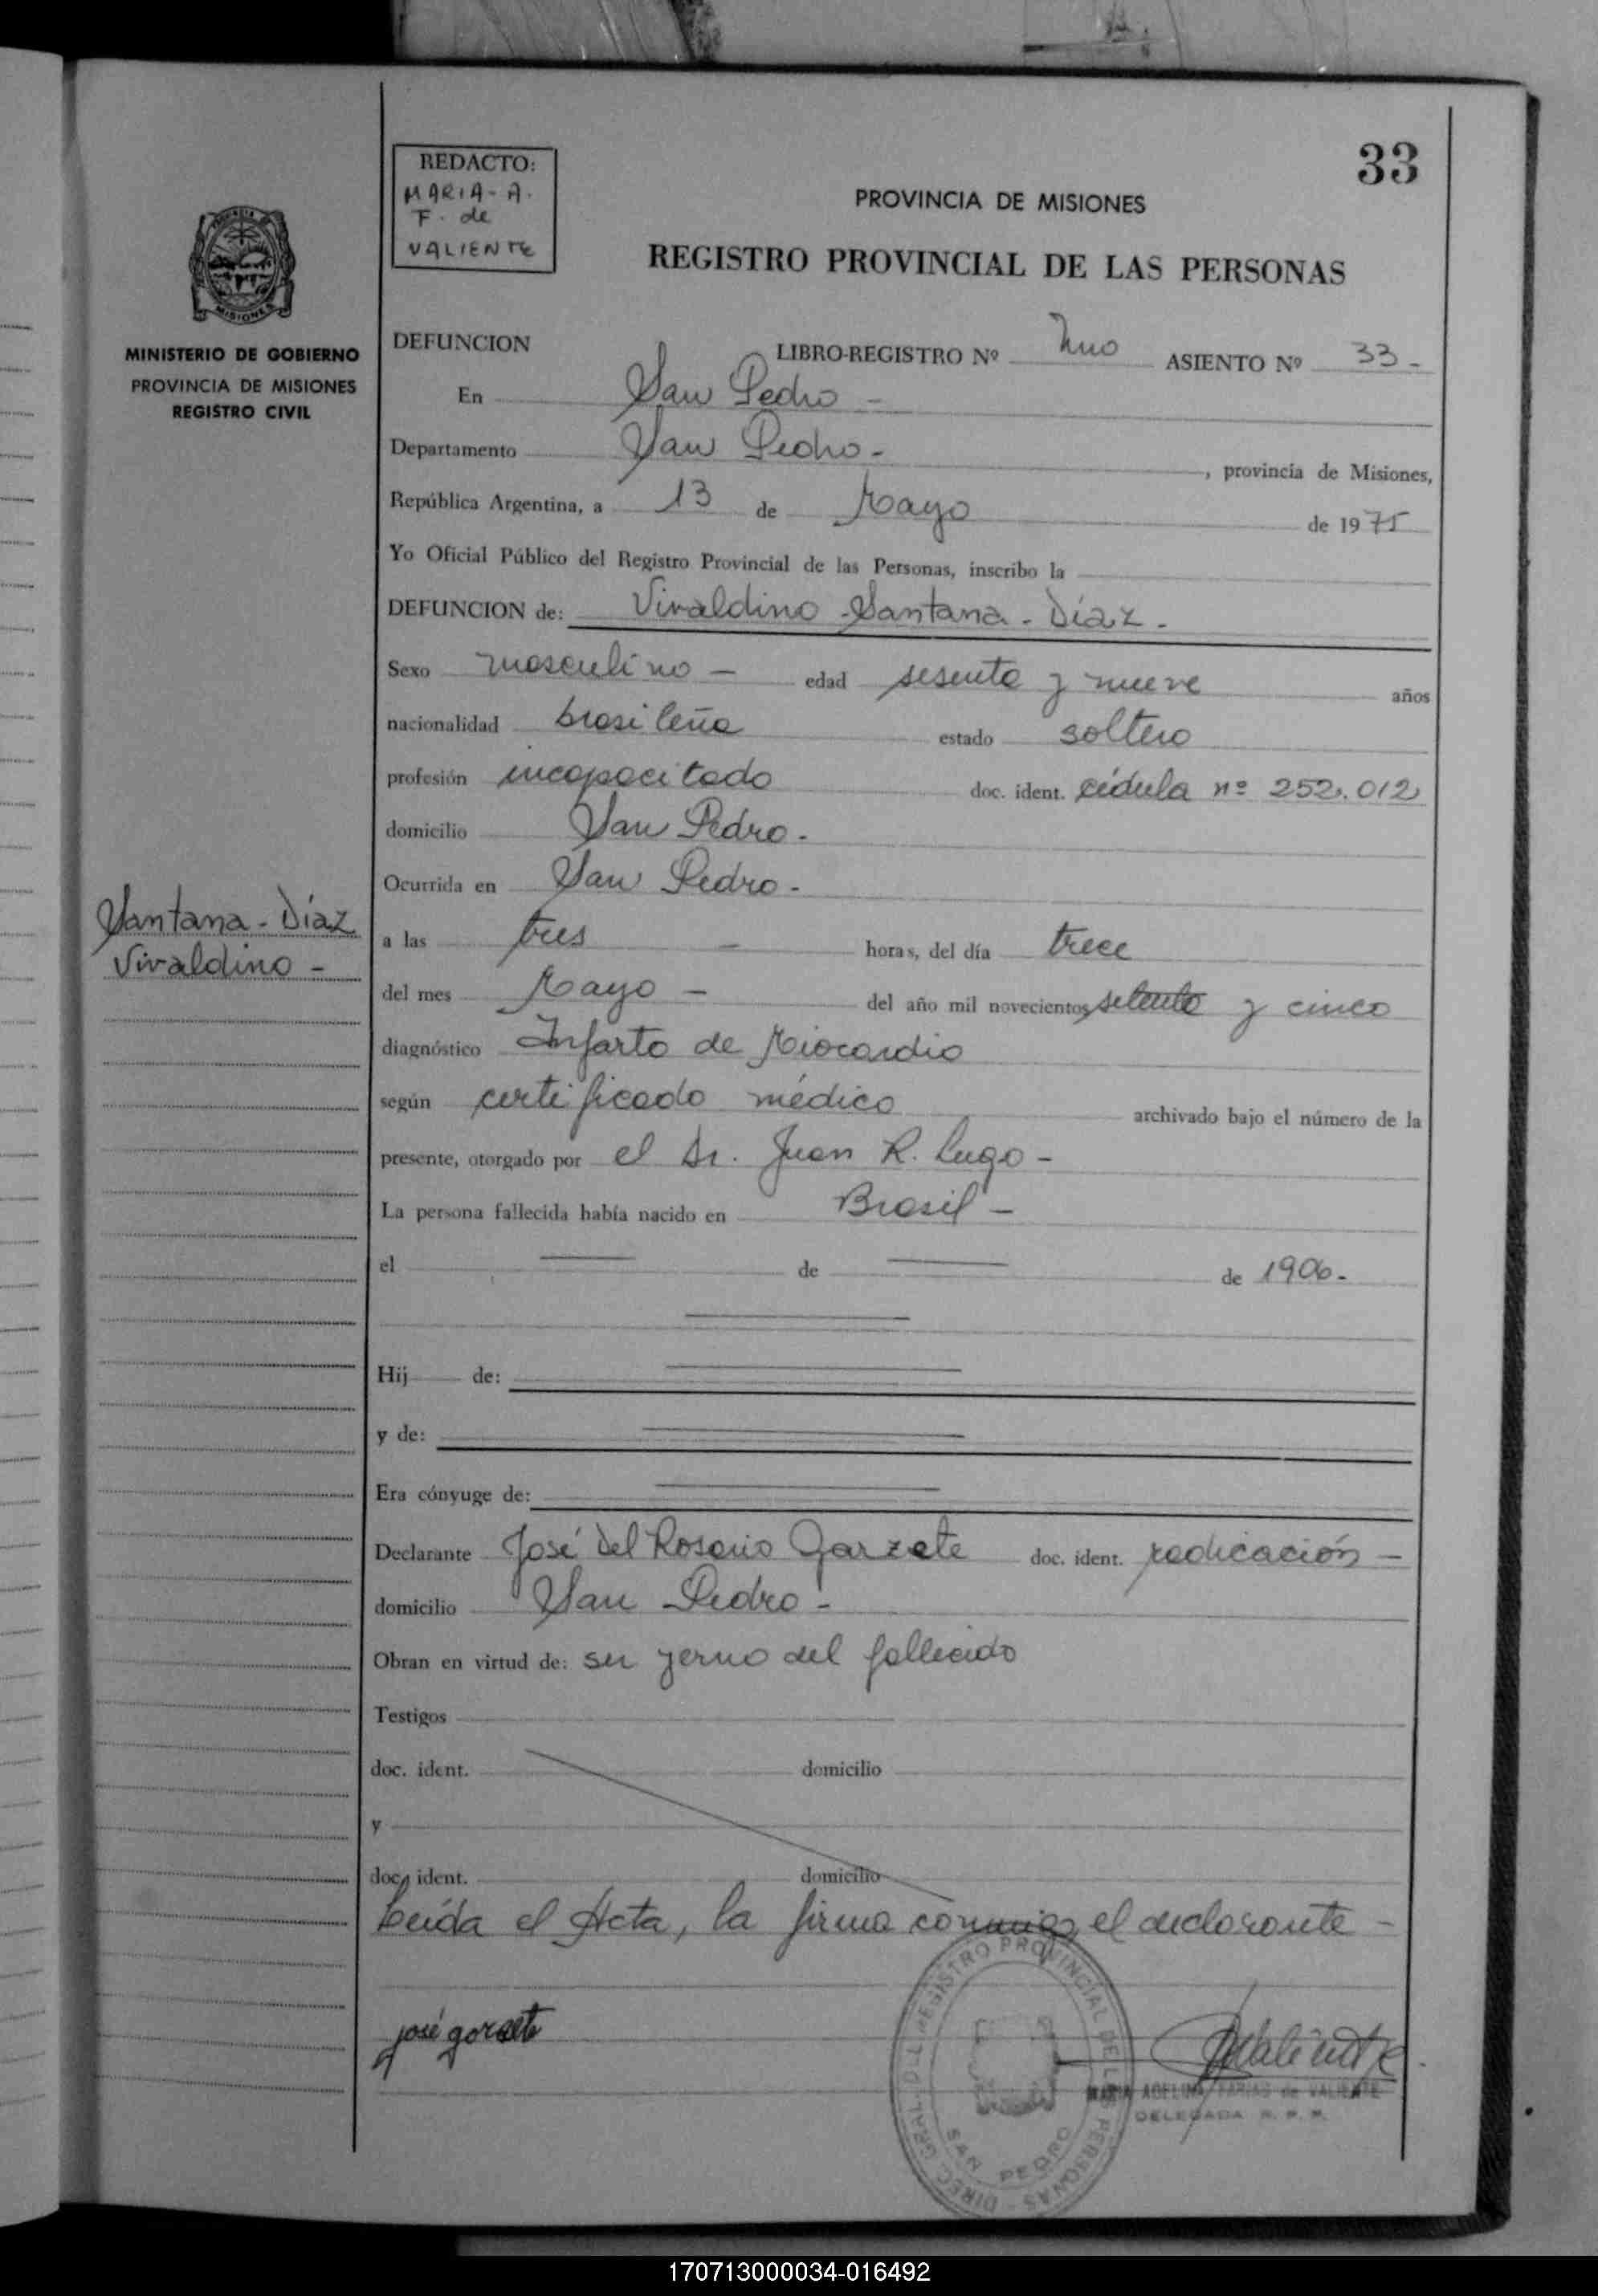 33
REDACTO:
MARIA - A.
F. de
VALIENTE
PROVINCIA DE MISIONES
REGISTRO PROVINCIAL DE LAS PERSONAS
MISIONES
MINISTERIO DE GOBIERNO
PROVINCIA DE MISIONES
REGISTRO CIVIL
DEFUNCION LIBRO-REGISTRO Nº Uno ASIENTO Nº 33 -
En San Pedro -
Departamento San Pedro - , provincia de Misiones,
República Argentina, a 13 de Mayo de 1975
Yo Oficial Público del Registro Provincial de las Personas, inscribo la
DEFUNCION de: Vivaldino Santana - Díaz -
Sexo masculino - edad sesenta y nueve años
nacionalidad brasileña estado soltero
profesión incapacitado doc. ident. cédula nº 252.012
domicilio San Pedro -
Ocurrida en San Pedro -
Santana - Díaz
Vivaldino -
a las tres - horas, del día trece
del mes Mayo - del año mil novecientos setenta y cinco
diagnóstico Infarto de Miocardio
según certificado médico archivado bajo el número de la
presente, otorgado por el Dr. Juan R. Lugo -
La persona fallecida había nacido en Brasil -
el de de 1906 -
Hij de:
y de:
Era cónyuge de:
Declarante José Del Rosario Garzete doc. ident. radicación -
domicilio San Pedro -
Obran en virtud de: ser yerno del fallecido
Testigos
doc. ident. domicilio
y
doc. ident. domicilio
Leída el Acta, la firma conmigo, el declarante -
josé garzete
Valiente
MARIA ADELINA FARIAS de VALIENTE
DELEGADA R. P. P.
DIREC. GRAL. DEL REGISTRO PROVINCIAL DE LAS PERSONAS -
SAN PEDRO
170713000034-016492